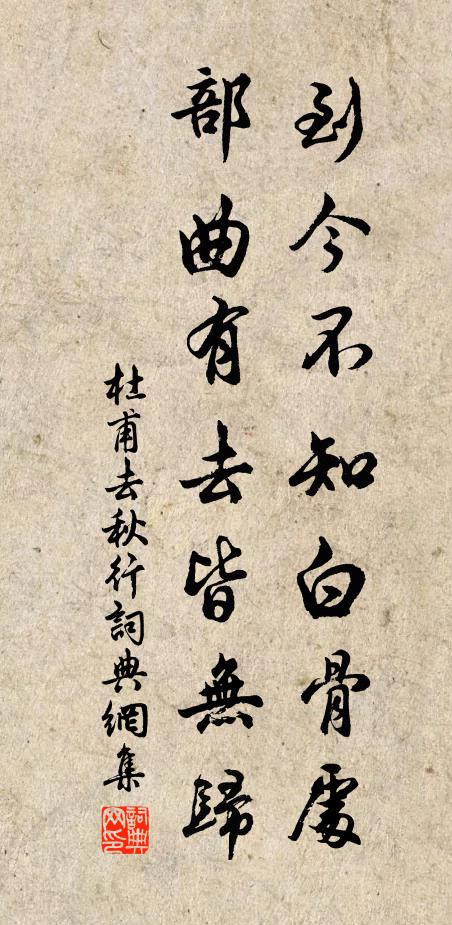 到今不知白骨處
部曲有去皆無歸
杜甫去秋行詞典網集
詞典
网印